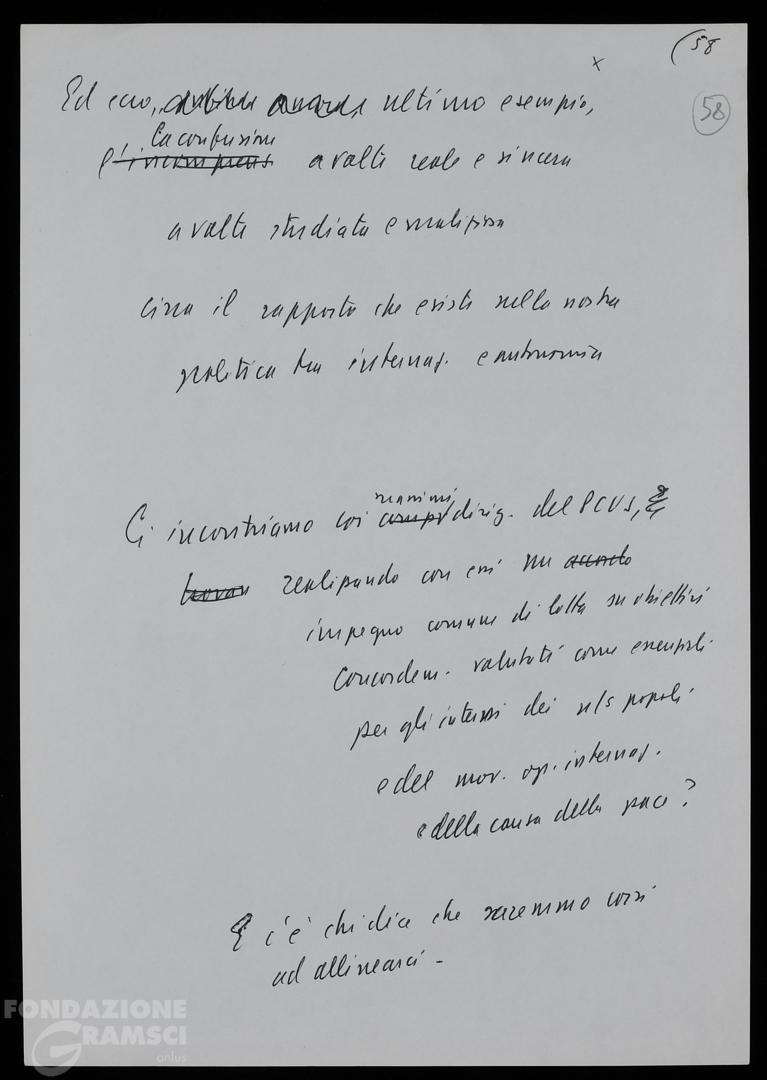 (58
x
58
Ed ecco, ultimo esempio,
la confusione
l'incomprens a volte reale e sincera
a volte studiata e maliziosa
circa il rapporto che esiste nella nostra
politica tra internaz. e autonomia
massimi
Ci incontriamo coi compr dirig. del PCUS, e
trovan realizzando con essi un accordo
impegno comune di lotta su obiettivi
concordem. valutati come essenziali
per gli interessi dei n/s popoli
e del mov. op. internaz.
e della causa della pace?
E c'è chi dice che saremmo corsi
ad allinearci -
FONDAZIONE
GRAMSCI
onlus